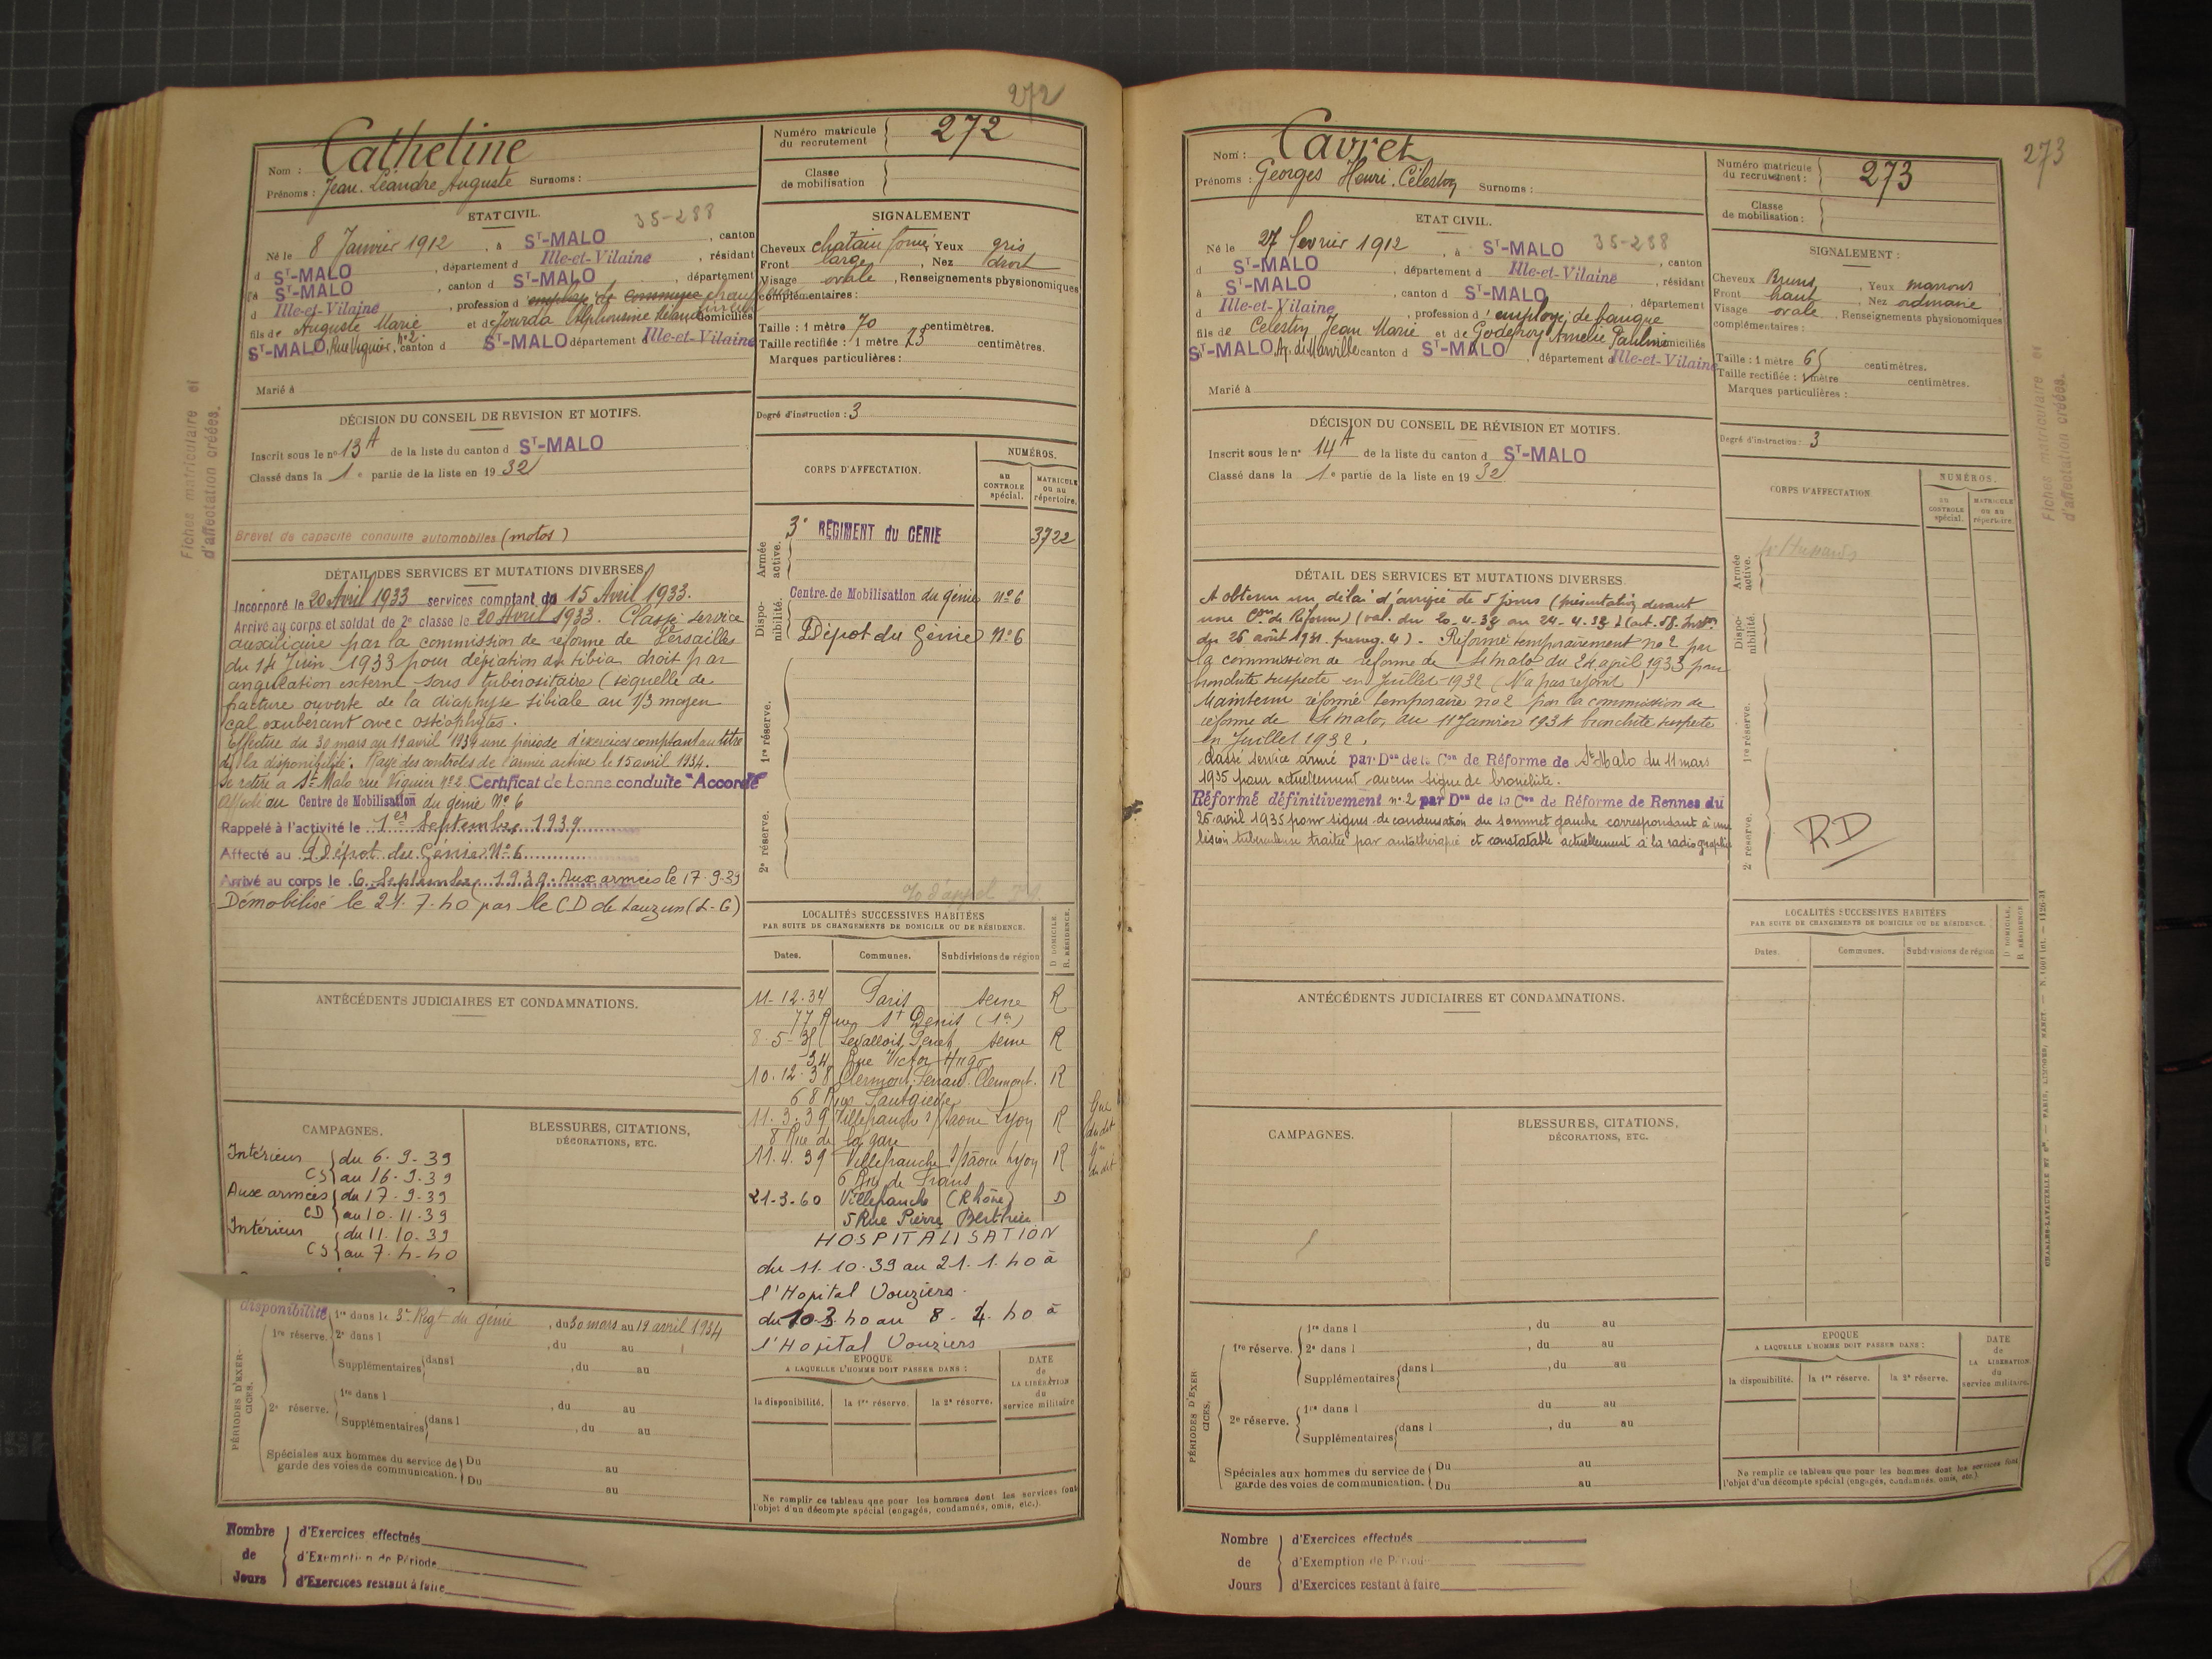 272
Nom : Catheline
Prénoms : Jean Léandre Auguste Surnoms :
Numéro matricule du recrutement 272
Classe de mobilisation
ETAT CIVIL. 35-288
Né le 8 Janvier 1912, à ST-MALO, canton
d ST-MALO, département d Ille-et-Vilaine, résidant
à ST-MALO, canton d ST-MALO, département
d Ille-et-Vilaine, profession d employé de commerce
fils de Auguste Marie et de Jourda Alphonsine domiciliés
ST-MALO, Rue Viguier, n° 2. canton d ST-MALO département d Ille-et-Vilaine
Marié à
SIGNALEMENT
Cheveux chatain foncé, Yeux gris
Front large, Nez droit
Visage ovale, Renseignements physionomiques
complémentaires :
Taille : 1 mètre 70 centimètres.
Taille rectifiée : 1 mètre 73 centimètres.
Marques particulières :
Degré d'instruction : 3
DÉCISION DU CONSEIL DE REVISION ET MOTIFS.
Inscrit sous le n° 13 A de la liste du canton d ST-MALO
Classé dans la 1e partie de la liste en 1932
Brevet de capacité conduite automobiles (motos)
CORPS D'AFFECTATION.
NUMÉROS.
au CONTROLE spécial.
MATRICULE ou au répertoire.
Armée active.
3e RÉGIMENT du GENIE 3722
Disponibilité.
Centre de Mobilisation du génie N° 6
Dépôt du Génie N° 6
1re réserve.
2e réserve.
DÉTAIL DES SERVICES ET MUTATIONS DIVERSES
Incorporé le 20 Avril 1933 services comptant du 15 Avril 1933.
Arrivé au corps et soldat de 2e classe le 20 Avril 1933. Classé service
auxiliaire par la commission de réforme de Versailles
du 14 Juin 1933 pour déviation du tibia droit par
angulation externe sous tubérositaire (séquelle de
fracture ouverte de la diaphyse tibiale au 1/3 moyen
cal exubérant avec ostéophytes.
Effectue du 30 mars au 19 avril 1934 une période d'exercices comptant au titre
de la disponibilité. Rayé des contrôles de l'armée active le 15 avril 1934.
Se retire à St Malo rue Viguier N° 2. Certificat de bonne conduite "Accordé"
Affecté au Centre de Mobilisation du génie N° 6
Rappelé à l'activité le 1er Septembre 1939
Affecté au Dépôt du Génie N° 6
Arrivé au corps le 6 Septembre 1939. Aux armées le 17.9.39
Démobilisé le 21.7.40 par le CD de Lauzun (L-G)
ANTÉCÉDENTS JUDICIAIRES ET CONDAMNATIONS.
LOCALITÉS SUCCESSIVES HABITÉES
PAR SUITE DE CHANGEMENTS DE DOMICILE OU DE RÉSIDENCE.
D. DOMICILE. R. RÉSIDENCE.
Dates. Communes. Subdivisions de région
11-12-34 Paris Seine R
77 Rue St Denis (1er)
8-5-38 Levallois Perret Seine R
34 Rue Victor Hugo
10.12.38 Clermont Ferrand Clermont. R
68 Rue
11.3.39 Villefranche s/Saone Lyon R
8 Rue de la gare
11.4.39 Villefranche s/Saone Lyon R
6 Rue de
21-3-60 Villefranche (Rhône) D
5 Rue Pierre Berthier
HOSPITALISATION
du 11.10.39 au 21.1.40 à
l'Hopital Vouziers.
du 10.3.40 au 8.4.40 à
l'Hopital Vouziers
CAMPAGNES.
Intérieur du 6.9.39
CS au 16.9.39
Aux armées du 17.9.39
CD au 10.11.39
Intérieur du 11.10.39
CS au 7.4.40
BLESSURES, CITATIONS, DÉCORATIONS, ETC.
PÉRIODES D'EXERCICES.
disponibilité 1re dans le 3e Régt du génie, du 30 mars au 19 avril 1934
1re réserve. 2e dans l , du au
Supplémentaires dans l , du au
2e réserve. 1re dans l , du au
Supplémentaires dans l , du au
Spéciales aux hommes du service de garde des voies de communication. Du au
Du au
EPOQUE
A LAQUELLE L'HOMME DOIT PASSER DANS :
la disponibilité. la 1re réserve. la 2e réserve.
DATE de LA LIBÉRATION du service militaire
Ne remplir ce tableau que pour les hommes dont les services font
l'objet d'un décompte spécial (engagés, condamnés, omis, etc.).
Nombre de Jours
d'Exercices effectués
d'Exemption de Période
d'Exercices restant à faire
Fiches matriculaire et d'affectation créées.
273
Nom : Cavret
Prénoms : Georges Henri Célestin Surnoms :
Numéro matricule du recrutement : 273
Classe de mobilisation :
ETAT CIVIL.
Né le 27 fevrier 1912, à ST-MALO 35-288, canton
d ST-MALO, département d Ille-et-Vilaine, résidant
à ST-MALO, canton d ST-MALO, département
d Ille-et-Vilaine, profession d'employé de banque
fils de Célestin Jean Marie et de Godefroy Amélie Pauline domiciliés
ST-MALO, canton d ST-MALO, département d Ille-et-Vilaine
Marié à
SIGNALEMENT :
Cheveux Bruns, Yeux marrons
Front haut, Nez ordinaire
Visage ovale, Renseignements physionomiques
complémentaires :
Taille : 1 mètre 65 centimètres.
Taille rectifiée : 1 mètre centimètres.
Marques particulières :
Degré d'instruction : 3
DÉCISION DU CONSEIL DE RÉVISION ET MOTIFS.
Inscrit sous le n° 14 A de la liste du canton d ST-MALO
Classé dans la 1e partie de la liste en 1932
CORPS D'AFFECTATION
NUMÉROS.
AU CONTROLE spécial.
MATRICULE OU AU répertoire.
Armée active.
Hussards
Disponibilité.
1re réserve.
2e réserve.
RD
DÉTAIL DES SERVICES ET MUTATIONS DIVERSES.
A obtenu un délai d'arrivée de 5 jours (présentation devant
une Con de Réforme) (val. du 20-4-33 au 24-4-33) (art. 58. Inston
du 26 août 1931. parag. 4). Réformé temporairement no 2 par
la commission de réforme de St malo du 24 april 1933 pour
bronchite suspecte en Juillet 1932 (N'a pas rejoint)
Maintenu réformé temporaire no 2 par la commission de
réforme de St malo, du 11 Janvier 1934 bronchite suspecte
en Juillet 1932.
Classé service armé par Don de la Con de Réforme de St Malo du 11 mars
1935 pour actuellement aucun signe de bronchite.
Réformé définitivement n° 2 par Don de la Con de Réforme de Rennes du
26 avril 1935 pour signes de condensation du sommet gauche correspondant à une
lésion tuberculeuse traitée par et constatable actuellement à la radiographie
ANTÉCÉDENTS JUDICIAIRES ET CONDAMNATIONS.
LOCALITÉS SUCCESSIVES HABITÉES
PAR SUITE DE CHANGEMENTS DE DOMICILE OU DE RÉSIDENCE.
D DOMICILE. R RÉSIDENCE
Dates. Communes. Subdivisions de région
CAMPAGNES.
BLESSURES, CITATIONS, DÉCORATIONS, ETC.
PÉRIODES D'EXERCICES.
1re réserve. 1re dans l , du au
2e dans l , du au
Supplémentaires dans l , du au
2e réserve. 1re dans l du au
Supplémentaires dans l , du au
Spéciales aux hommes du service de garde des voies de communication. Du au
Du au
EPOQUE
A LAQUELLE L'HOMME DOIT PASSER DANS :
la disponibilité. la 1re réserve. la 2e réserve.
DATE de LA LIBÉRATION du service militaire.
Ne remplir ce tableau que pour les hommes dont les services font
l'objet d'un décompte spécial (engagés, condamnés, omis, etc.).
Nombre de Jours
d'Exercices effectués
d'Exemption de Période
d'Exercices restant à faire
Fiches matriculaire et d'affectation créées.